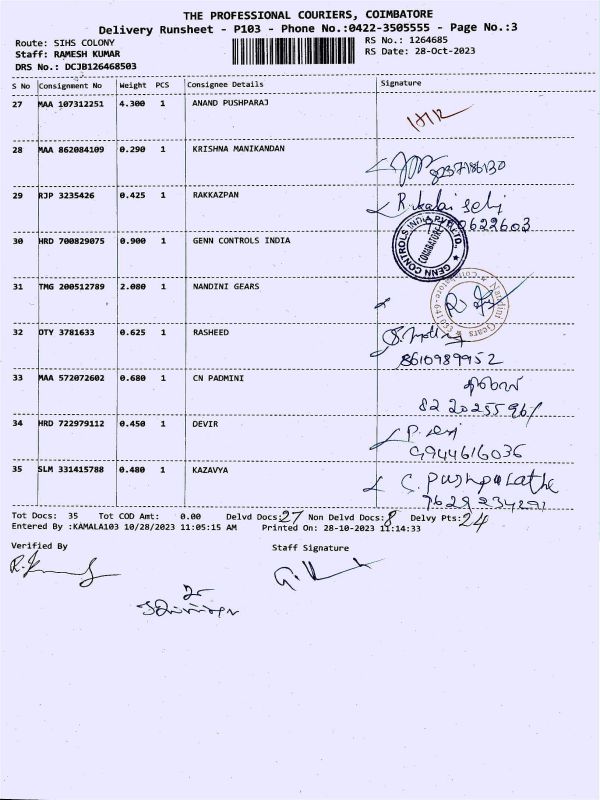 THE PROFESSIONAL COURIERS, COIMBATORE
Delivery Runsheet - P103 - Phone No.:0422-3505555 - Page No.:3
Route: SIHS COLONY
RS No.: 1264685
Staff: RAMESH KUMAR
RS Date: 28-Oct-2023
DRS No.: DCJB126468503
S No Consignment No Weight PCS Consignee Details Signature
27 MAA 107312251 4.300 1 ANAND PUSHPARAJ
28 MAA 862084109 0.290 1 KRISHNA MANIKANDAN
29 RJP 3235426 0.425 1 RAKKAZPAN
30 HRD 700829075 0.900 1 GENN CONTROLS INDIA
GENN CONTROLS INDIA PVT. LTD., COIMBATORE
31 TMG 200512789 2.080 1 NANDINI GEARS
Nandini Gears
32 DTY 3781633 0.625 1 RASHEED
8610989952
33 MAA 572072602 0.680 1 CN PADMINI
34 HRD 722979112 0.450 1 DEVIR
9944616036
35 SLM 331415788 0.480 1 KAZAVYA
Tot Docs: 35 Tot COD Amt: 0.00 Delvd Docs: 27 Non Delvd Docs: 8 Delvy Pts: 24
Entered By :KAMALA103 10/28/2023 11:05:15 AM Printed On: 28-10-2023 11:14:33
Verified By
Staff Signature